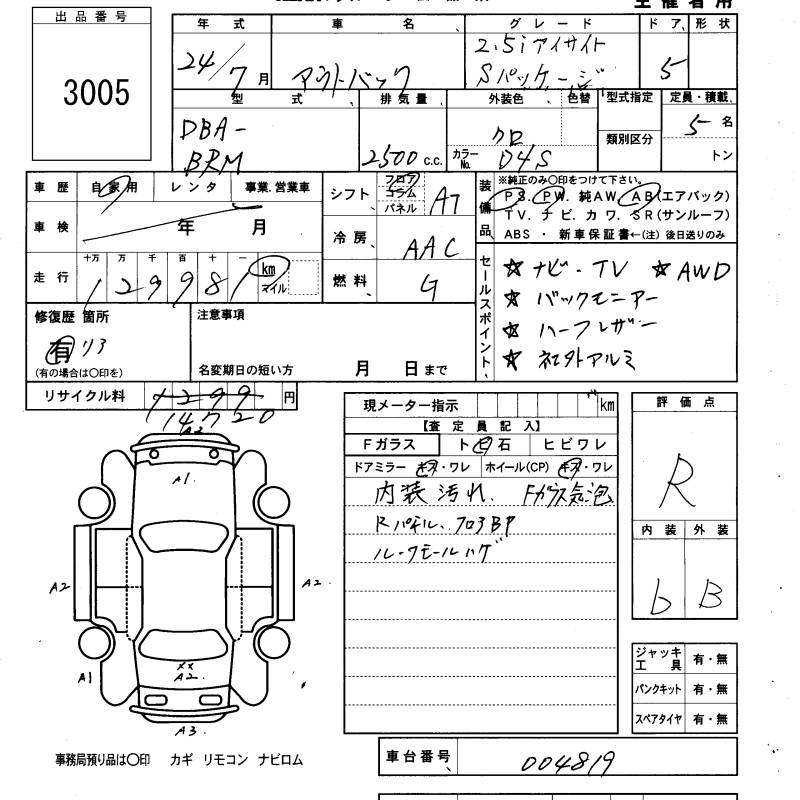 主催者用
出品番号
3005
年式 車名 グレード ドア 形状
24/7月 アウトバック 2.5iアイサイト Sパッケージ 5
型式 排気量 外装色 色替 型式指定 定員・積載
DBA-BRM 2500 c.c. クロ カラーNo. D4S 類別区分 5名 トン
車歴 自家用 レンタ 事業.営業車
車検 年 月
走行 十万 万 千 百 十 一 km マイル
129981
シフト フロア コラム パネル AT
冷房 AAC
燃料 G
装備品 ※純正のみ○印をつけて下さい。
PS. PW. 純AW. AB(エアバック)
TV. ナビ. カワ. SR(サンルーフ)
ABS ・ 新車保証書←(注) 後日送りのみ
セールスポイント
☆ ナビ・TV ☆ AWD
☆ バックモニター
☆ ハーフレザー
☆ 社外アルミ
修復歴 箇所
有 リア
(有の場合は○印を)
注意事項
名変期日の短い方 月 日まで
リサイクル料 1299 円
14720
A2
A1
A2 A2
××
A2
A1
A3
現メーター指示 km
【査定員記入】
Fガラス トビ石 ヒビワレ
ドアミラー キズ・ワレ ホイール(CP) キズ・ワレ
内装 汚れ. Fガラス気泡
Rパネル、フロアBP
ルーフモールハゲ
評価点
R
内装 外装
b B
ジャッキ工具 有・無
パンクキット 有・無
スペアタイヤ 有・無
事務局預り品は○印 カギ リモコン ナビロム
車台番号 004819